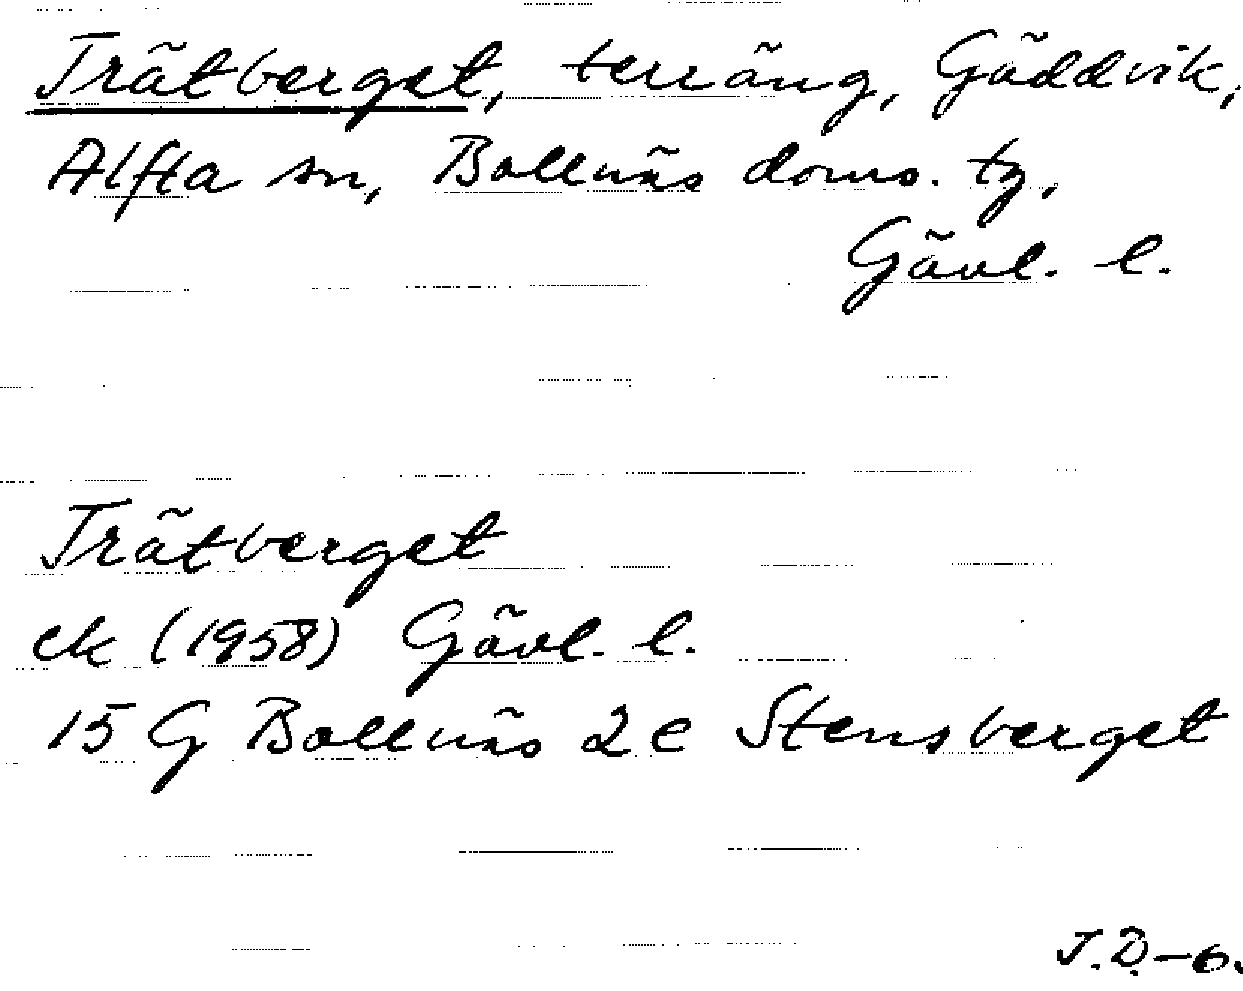 Trätberget, terräng, Gäddvik,
Alfta sn, Bollnäs doms. tg,
Gävl. l.
Trätberget
ek (1958) Gävl. l.
15 G Bollnäs 2 e Stensberget
J.D.-6.